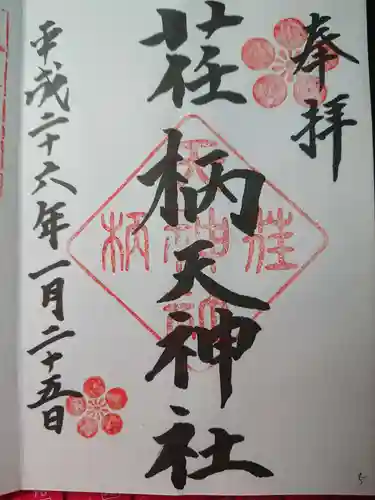 奉拝
荏柄天神社
平成二十六年一月二十五日